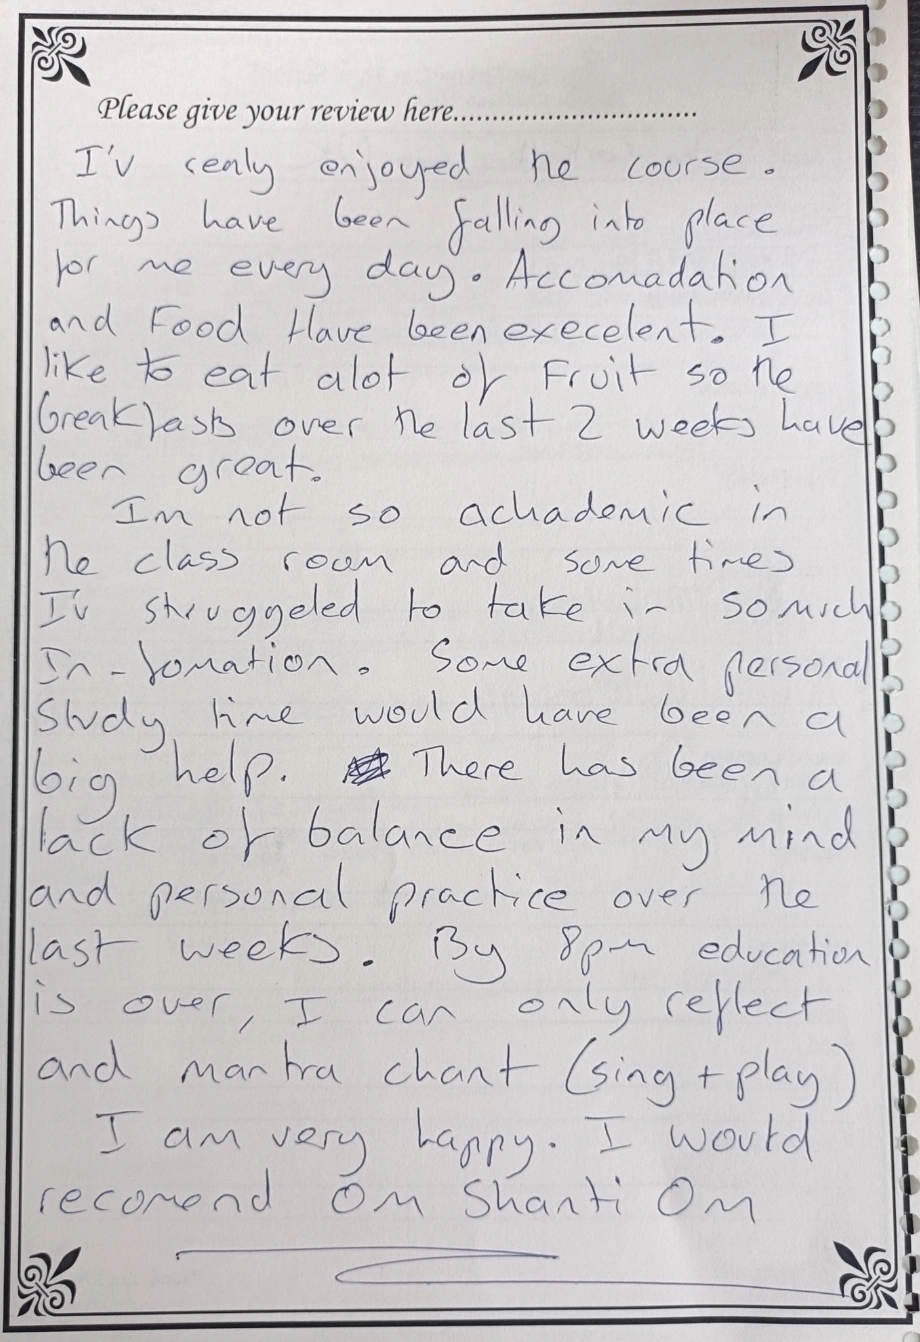 Please give your review here................................
I'v realy enjoyed the course.
Things have been falling into place
for me every day. Accomadation
and Food Have been execelent. I
like to eat alot of Fruit so the
breakfasts over the last 2 weeks have
been great.
Im not so achademic in
the class room and some times
I'v struggeled to take in so much
In-fomation. Some extra personal
Study time would have been a
big help. There has been a
lack of balance in my mind
and personal practice over the
last weeks. By 8pm education
is over, I can only reflect
and mantra chant (sing + play)
I am very happy. I would
recomend Om Shanti Om